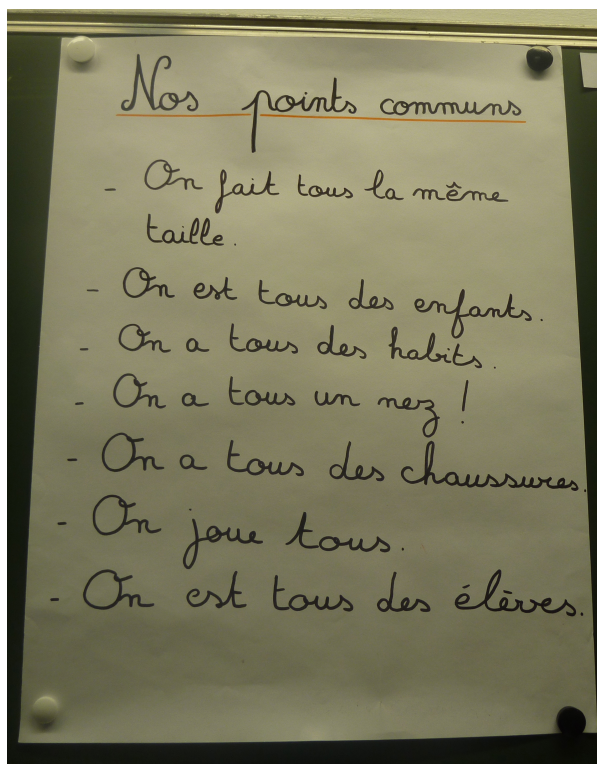 Nos points communs
- On fait tous la même
taille.
- On est tous des enfants.
- On a tous des habits.
- On a tous un nez !
- On a tous des chaussures.
- On joue tous.
- On est tous des élèves.